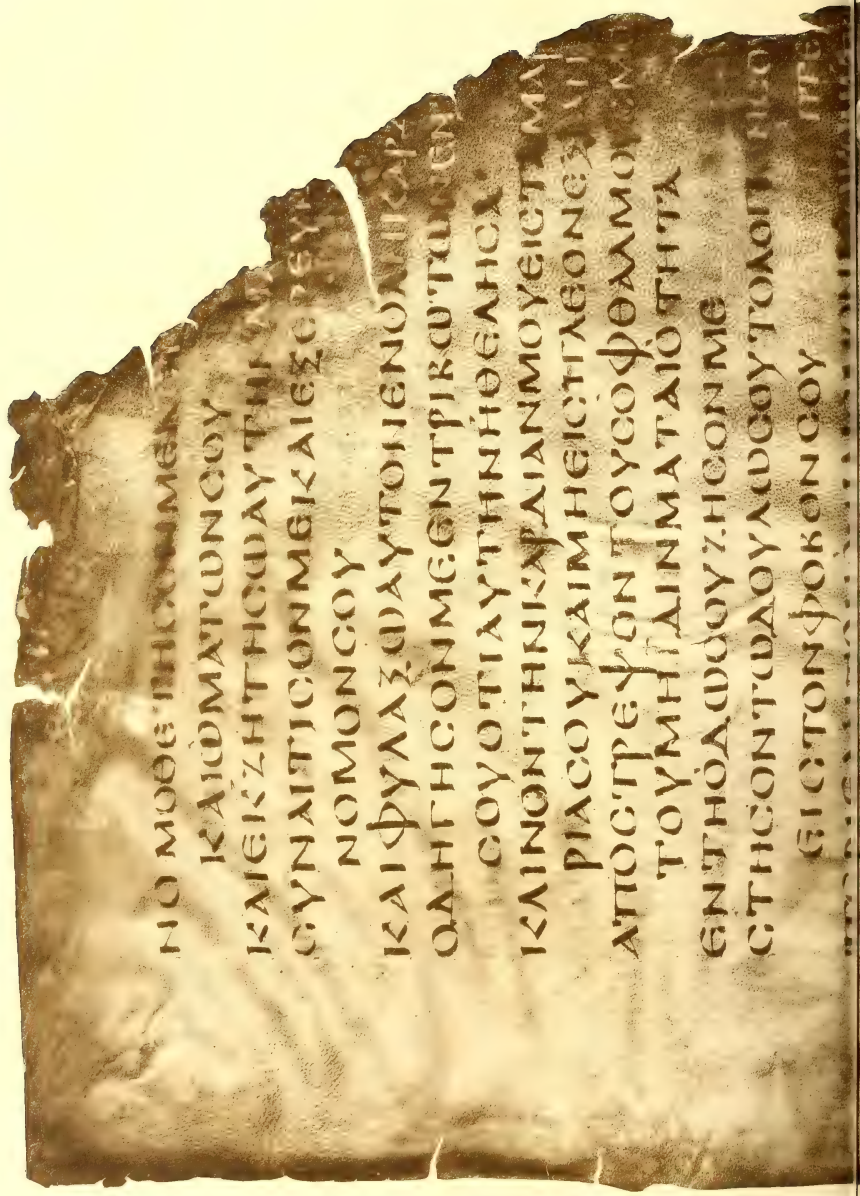 ΝΟΜΟΘΕΤΗϹΟΝΜΕ
ΚΑΙΩΜΑΤΩΝϹΟΥ
ΚΑΙΕΚΖΗΤΗϹΩΑΥΤΗΝ
ϹΥΝΑΙΤΙϹΟΝΜΕΚΑΙΕΞΕΡΕΥΝ
ΝΟΜΟΝϹΟΥ
ΚΑΙΦΥΛΑΞΩΑΥΤΟΝΕΝΟΛΗΚΑΡΔ
ΟΔΗΓΗϹΟΝΜΕΕΝΤΡΙΒΩΤΩΝΕΝ
ϹΟΥΟΤΙΑΥΤΗΝΗΘΕΛΗϹΑ
ΚΛΙΝΟΝΤΗΝΚΑΡΔΙΑΝΜΟΥΕΙϹΤΑΜΑΡ
ΡΙΑϹΟΥΚΑΙΜΗΕΙϹΠΛΕΟΝΕΞ
ΑΠΟϹΤΡΕΨΟΝΤΟΥϹΟΦΘΑΛΜΟΥϹΜΟΥ
ΤΟΥΜΗΪΔΙΝΜΑΤΑΙΟΤΗΤΑ
ΕΝΤΗΟΔΩϹΟΥΖΗϹΟΝΜΕ
ϹΤΗϹΟΝΤΩΔΟΥΛΩϹΟΥΤΟΛΟΓΙ
ΕΙϹΤΟΝΦΟΒΟΝϹΟΥ